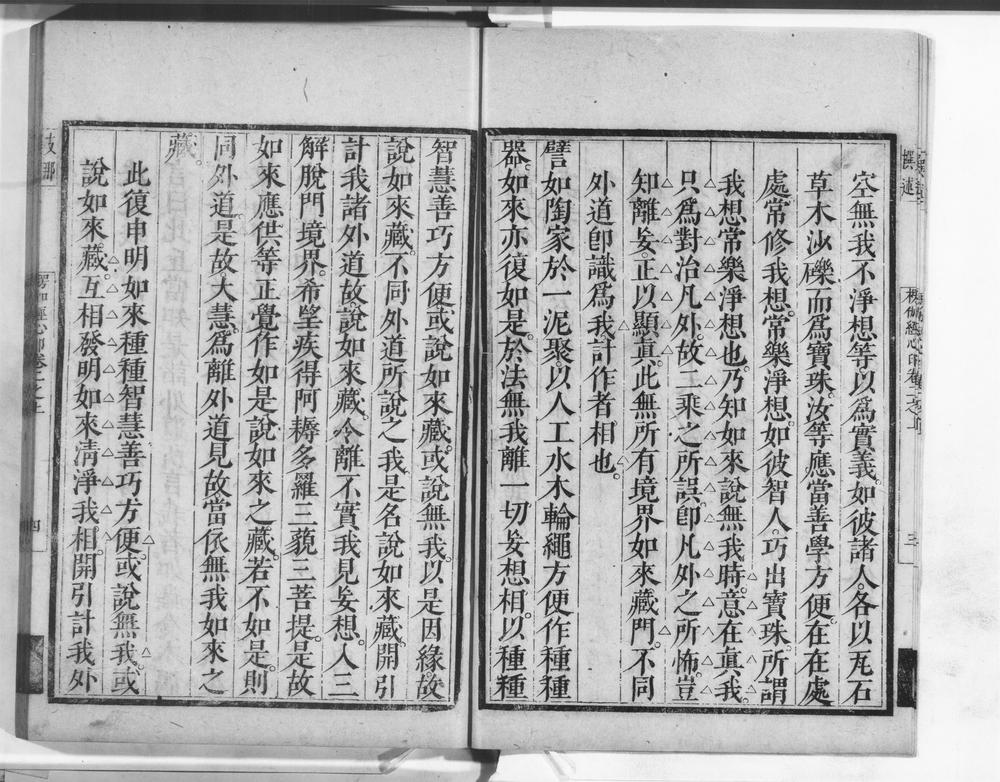 空無我不淨想等以為實義。如彼諸人。各以瓦石
草木沙礫而為寶珠。汝等應當善學方便。在在處
處常修我想。常樂淨想。如彼智人。巧出寶珠。所謂
我想常樂淨想也。乃知如來說無我時。意在眞我。
只為對治凡外。故二乘之所誤。卽凡外之所怖。豈
知離妄。正以顯眞。此無所有境界如來藏門。不同
外道卽識為我計作者相也。
譬如陶家於一泥聚以人工水木輪繩方便作種種
器。如來亦復如是。於法無我離一切妄想相。以種種
智慧善巧方便。或說如來藏。或說無我。以是因緣故
說如來藏。不同外道所說之我。是名說如來藏。開引
計我諸外道故說如來藏。令離不實我見妄想。入三
解脫門境界。希望疾得阿耨多羅三藐三菩提。是故
如來應供等正覺作如是說如來之藏。若不如是。則
同外道。是故大慧。為離外道見故當依無我如來之
藏。
此復申明如來種種智慧善巧方便。或說無我。或
說如來藏。互相發明如來淸淨我相。開引計我外
四
撰述
楞伽經心印卷二之上
三